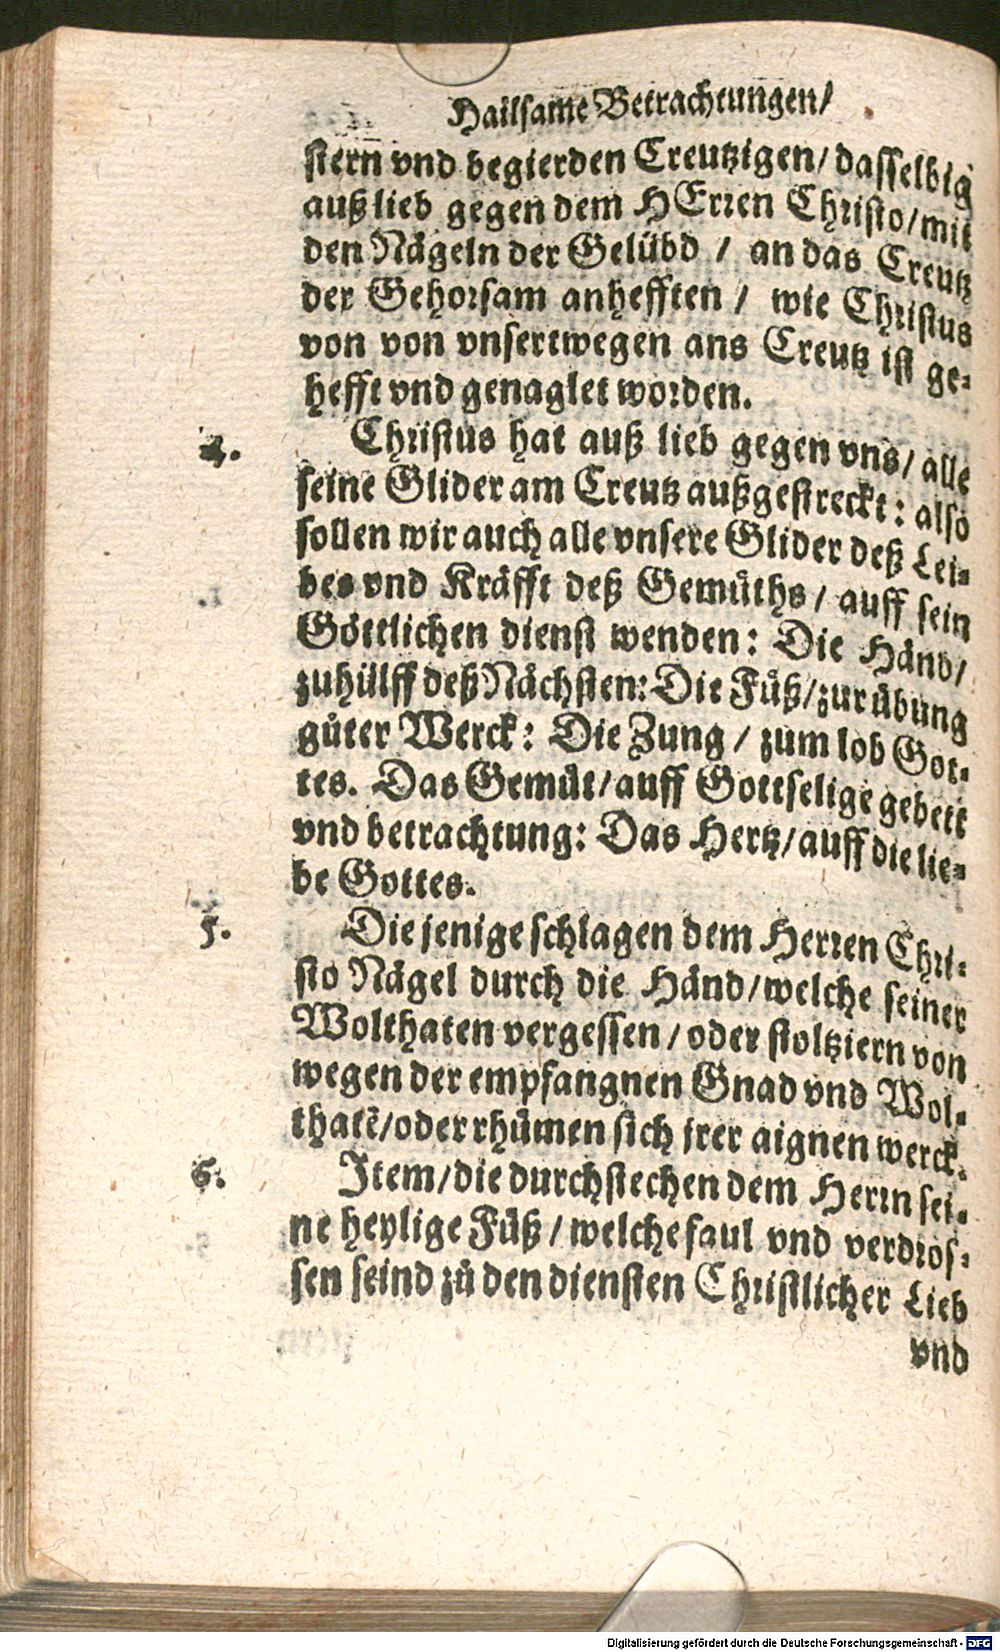 Hailsame Betrachtungen/
stern vnd begierden Creutzigen/ dasselbig
auß lieb gegen dem HErren Christo/ mit
den Nägeln der Gelübd / an das Creutz
der Gehorsam anhefften / wie Christus
von von vnsertwegen ans Creutz ist ge-
hefft vnd genaglet worden.
4. Christus hat auß lieb gegen vns/ alle
seine Glider am Creutz außgestreckt: also
sollen wir auch alle vnsere Glider deß Lei-
bes vnd Kräfft deß Gemüths / auff sein
Göttlichen dienst wenden: Die Händ/
zuhülff deß Nächsten: Die Füß/ zur übung
gůter Werck: Die Zung / zum lob Got-
tes. Das Gemüt/ auff Gottselige gebett
vnd betrachtung: Das Hertz/ auff die lie-
be Gottes.
5. Die jenige schlagen dem Herren Chri-
sto Nägel durch die Händ/ welche seiner
Wolthaten vergessen / oder stoltziern von
wegen der empfangnen Gnad vnd Wol-
thatẽ/ oder rhümen sich jrer aignen werck.
6. Item/ die durchstechen dem Herrn sei-
ne heylige Füß / welche faul vnd verdros-
sen seind zů den diensten Christlicher Lieb
vnd
Digitalisierung gefördert durch die Deutsche Forschungsgemeinschaft - DFG